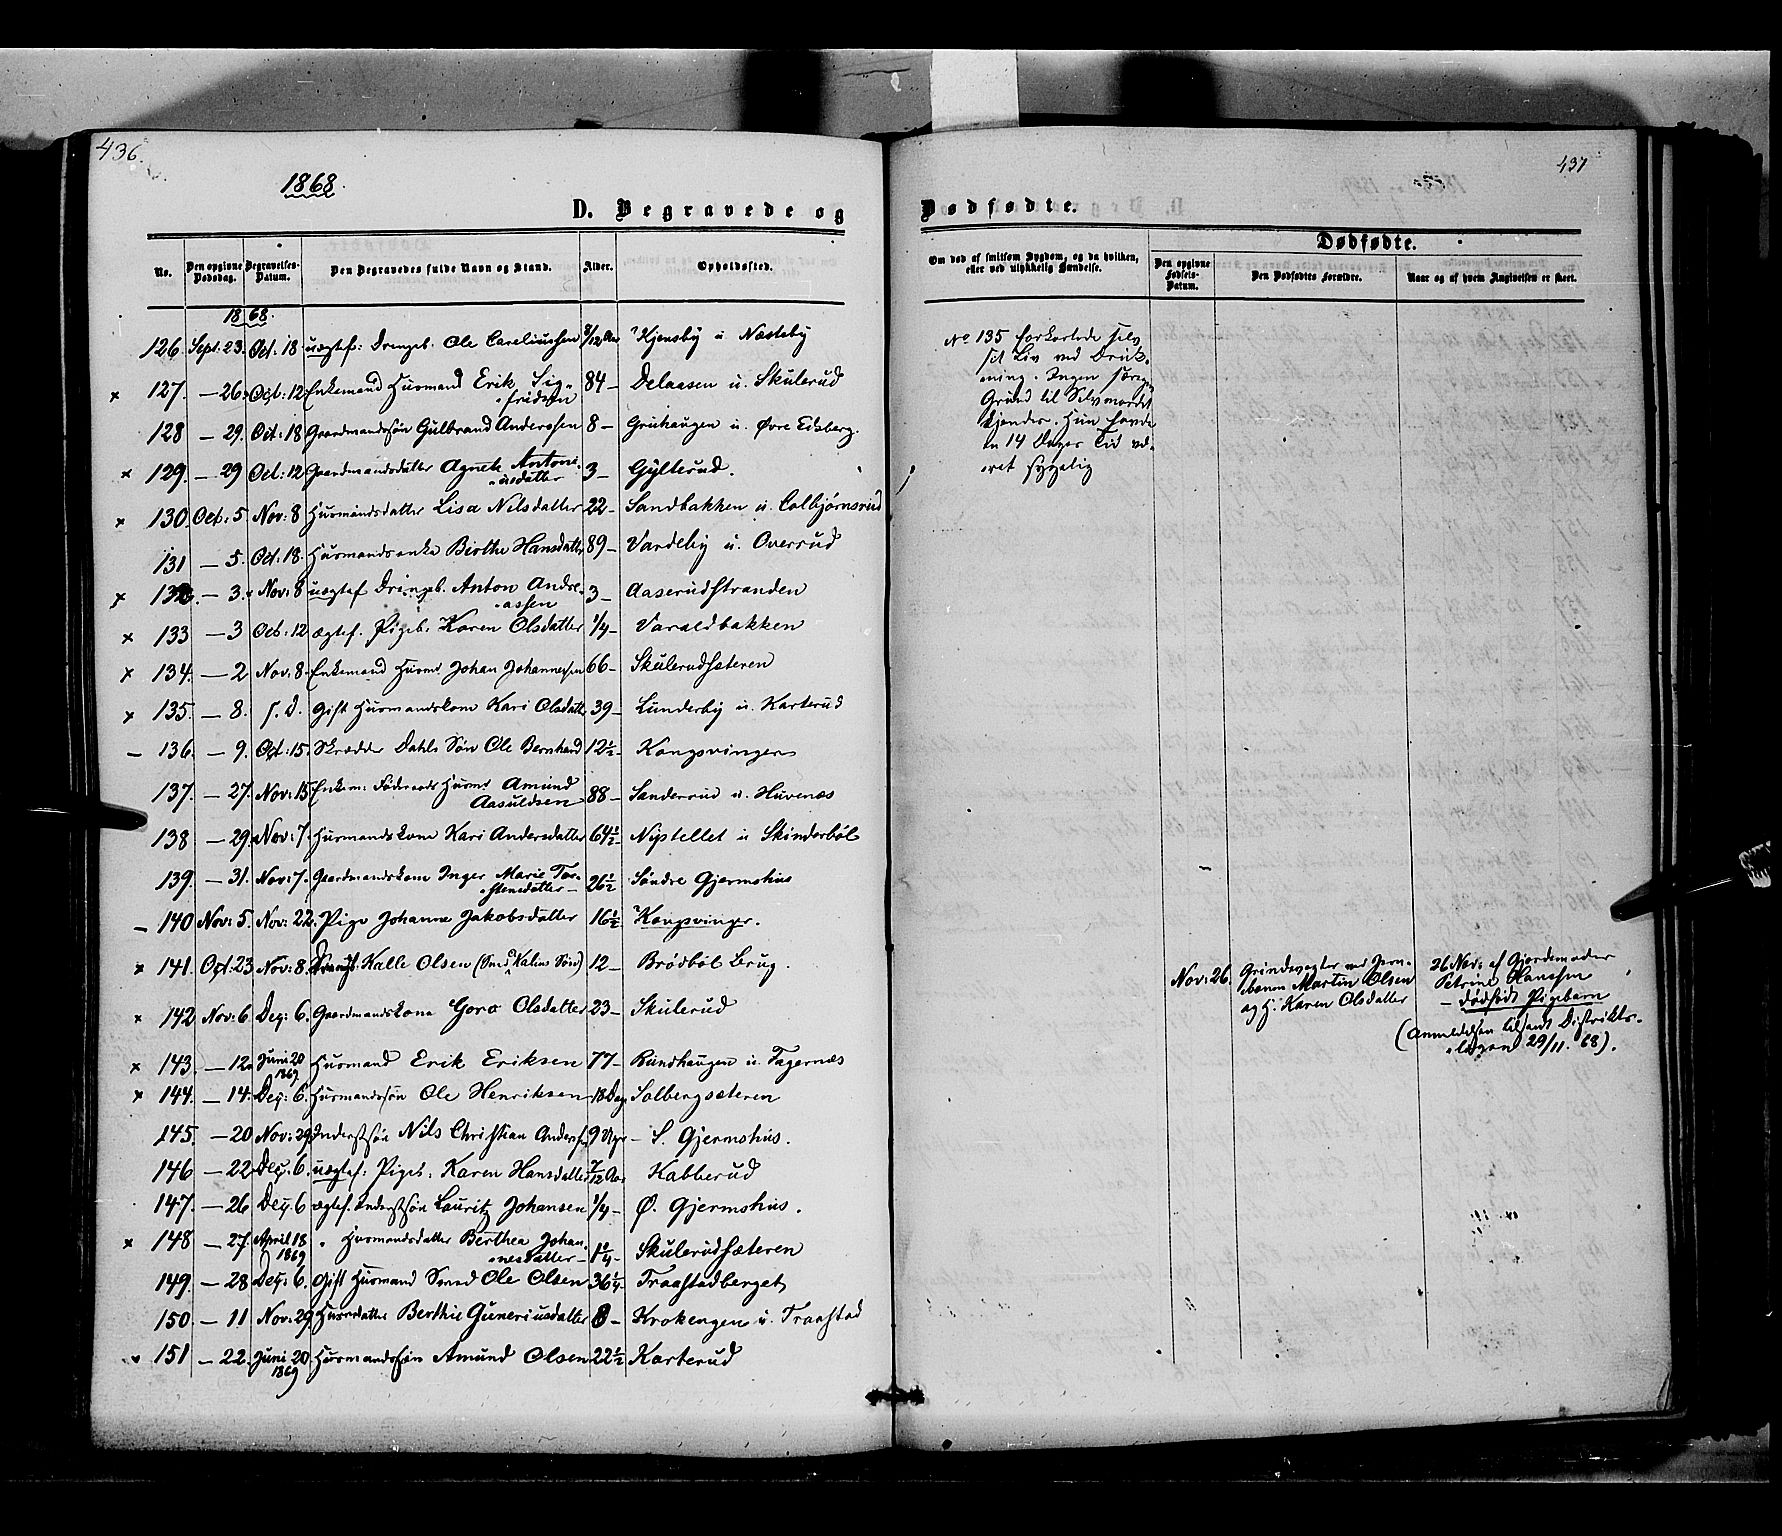 436.
1868.
D. Begravede og
No.
Den opgivne Dødsdag.
Begravelses-Datum.
Den Begravedes fulde Navn og Stand.
Alder.
Opholdssted.
1868.
126. Sept: 23. Oct: 18 uægtef: Drengeb. Ole Careliussen 3/12 Aar Kjensby u Næsteby
x 127. — 26. Oct: 12 Enkemand Husmand Erik Sig-
fridsen 84 — Delaasen u. Skulerud
128 — 29. Oct: 18 Gaardmandssøn Gulbrand Anderssen 8 — Gruhaugen u. Øvre Edsberg.
x 129. — 29 Oct: 12 Gaardmandsdatter Agnete Antoni-
usdatter 3 — Gylterud.
x 130 Oct: 5. Nov: 8 Husmandsdatter Lisa Nilsdatter 22 — Sandbakken u. Colbjørnsrud
131 — 5. Oct: 18. Husmandsenke Birthe Hansdatter 89 — Vardeby u. Overrud
x 132. — 3. Nov: 8 uægtef Drengeb. Anton Andre-
assen 3 — Aaserudstranden
x 133 — 3 Oct: 12 ægtef. Pigeb: Karen Olsdatter 1/4 — Varaldbakken
x 134. — 2 Nov: 8. Enkemand Husmd Johan Johannessen 66 — Skulerudsæteren
x 135. — 8. s. d. Gift Husmandskone Kari Olsdatter 39 — Lunderby u. Karterud
— 136. — 9. Oct: 15 Skrædder Dahls Søn Ole Bernhard 12 1/2 — Kongsvinger
137. — 27. Nov: 15 Enkem: Føderaads Husmd Amund
Aasuldsen 88 — Sanderud u. Huvenæs
138 — 29. Nov: 7. Husmandskone Kari Andersdatter 64 1/2 — Nystellet u Skinderbøl
139. — 31. Nov: 7. Gaardmandskone Inger Marie Tor-
stensdatter — 26 1/2 Søndre Gjermshus
— 140 Nov: 5. Nov: 22. Pige Johanne Jakobsdatter 16 1/2 Kongsvinger.
x 141. Oct: 23 Nov: 8. Drengb: Kalle Olsen (Smed Kalins Søn) 12 — Brødbøl Brug.
x 142 Nov: 6. Dec: 6. Gaardmandskone Goro Olsdatter 23 — Skulerud
x 143. — 12. Juni 20
1869 Husmand Erik Eriksen 77 — Rundhaugen u. Fagernæs
x 144. — 14. Dec: 6. Husmandssøn Ole Henriksen 18 Dag Solbergsæteren
145. — 20 Nov: 29 Inderstsøn Nils Christian Anderss. 9 Uger — S. Gjermshus.
146 — 22. Dec: 6. uægtef: Pigeb: Karen Hansdatter 7/12 Aar Kabberud
147. — 26 Dec: 6 ægtef. Inderstsøn Lauritz Johansen 1/4 — Ø. Gjermshus.
x 148 — 27. April 18
1869 " Husmandsdatter Berthea Johan-
nesdatter — 1 1/4 — Skulerudsæteren
149. — 28 Dec: 6. Gift Husmand Smed Ole Olsen 36 1/4 — Traastadberget
150. — 11 Nov: 29. Husmdatter Berthe Guneriusdatter 8 — Krokengen u. Traastad
151 — 22. Juni 20
1869 Husmandssøn Amund Olsen 22 1/2 Karterud
437
Dødfødte.
Om død af smitsom Sygdom, og da hvilken,
eller ved ulykkelig Hændelse.
Dødfødte.
Den opgivne Fødsels-Datum.
Den Dødfødtes Forældre.
Naar og af hvem Angivelsen er skeet.
No 135 forkortede selv
sit Liv ved Druk-
ning. Ingen særegen
Grund til Selvmordet
kjendes. Hun havde
en 14 Dages Tid væ-
ret sygelig
Nov: 26. Grindevogter ved Jern-
banen Martin Olsen
og H. Karen Olsdatter
26 Nov: af Gjordemoder
Petrine Hansen
— dødfødt Pigebarn
(Anmeldelsen tilsendt Distrikts-
lægen 29/11. 68).